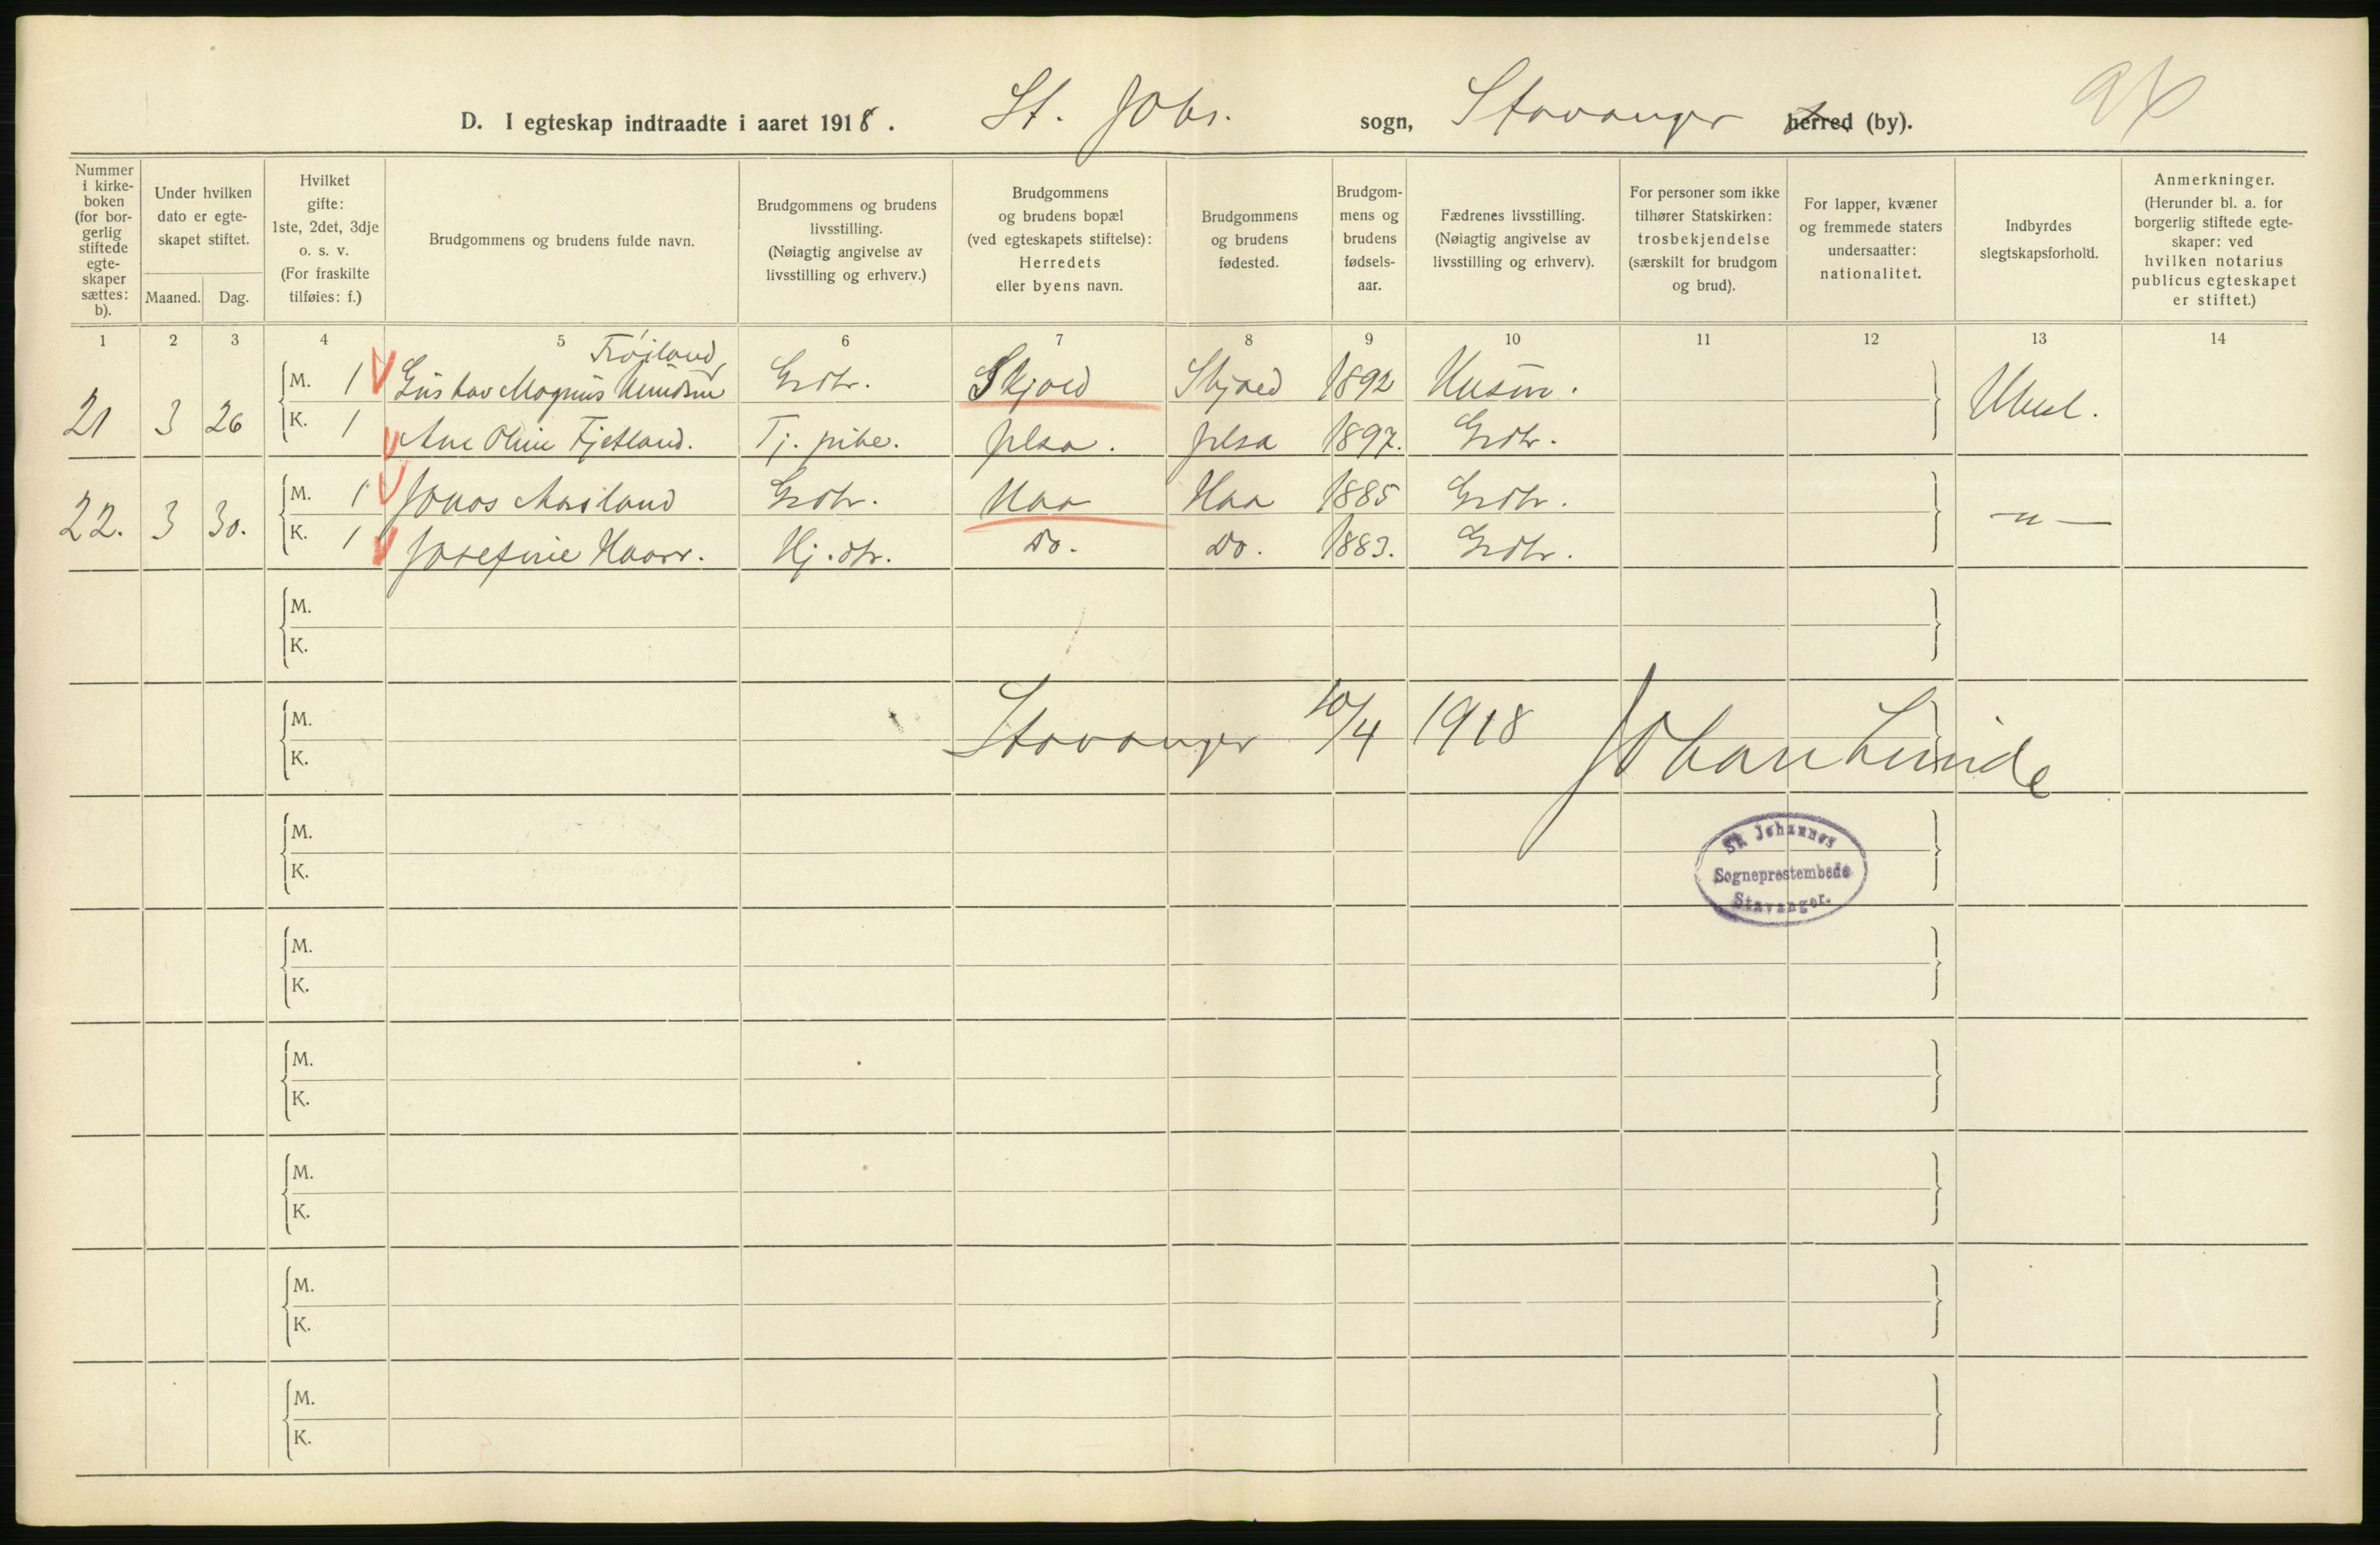 D. I egteskap indtraadte i aaret 1918. St. Johs. sogn, Stavanger herred (by).
Nummer i kirkeboken (for borgerlig stiftede egteskaper sættes: b).
Under hvilken dato er egteskapet stiftet.
Maaned. Dag.
Hvilket gifte: 1ste, 2det, 3dje o. s. v. (For fraskilte tilføies: f.)
Brudgommens og brudens fulde navn.
Brudgommens og brudens livsstilling. (Nøiagtig angivelse av livsstilling og erhverv.)
Brudgommens og brudens bopæl (ved egteskapets stiftelse): Herredets eller byens navn.
Brudgommens og brudens fødested.
Brudgommens og brudens fødselsaar.
Fædrenes livsstilling. (Nøiagtig angivelse av livsstilling og erhverv).
For personer som ikke tilhører Statskirken: trosbekjendelse (særskilt for brudgom og brud).
For lapper, kvæner og fremmede staters undersaatter: nationalitet.
Indbyrdes slegtskapsforhold.
Anmerkninger. (Herunder bl. a. for borgerlig stiftede egteskaper: ved hvilken notarius publicus egteskapet er stiftet.)
1 2 3 4 5 6 7 8 9 10 11 12 13 14
21 3 26 M. 1 Gustav Magnus Knudsen Grdbr. Skjold Skjold 1892 Husm. Ubesl.
K. 1 Ane Oline Fjetland. Tj. pike. Jelsa. Jelsa 1897. Grdbr.
22. 3 30. M. 1 Jonas Aasland Grdbr. Haa Haa 1885 Grdbr. -"-
K. 1 Josefine Haarr. Hj. dtr. Do. Do. 1883. Grdbr.
M.
K.
M.
K.
Stavanger 10/4 1918 Johan Lunde
M.
K.
St. Johannes
Sogneprestembede
Stavanger.
M.
K.
M.
K.
M.
K.
M.
K.
M.
K.